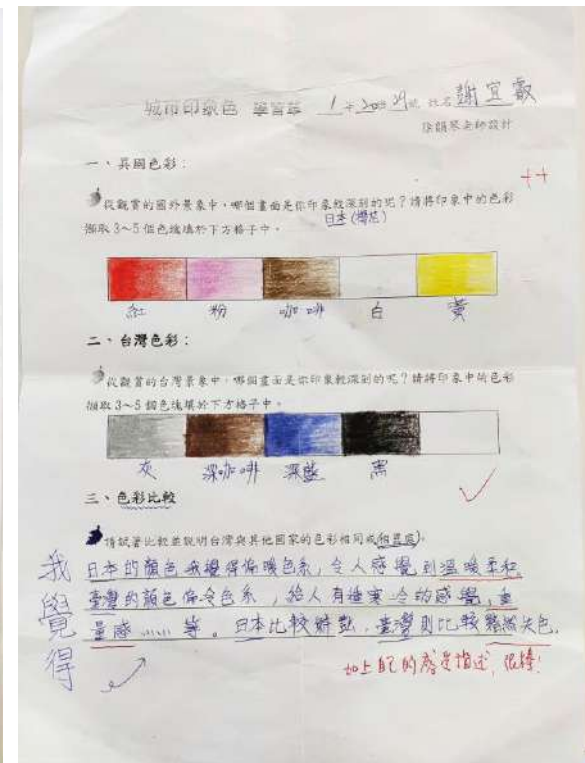 城市印象色 學習單 1年20班29號 姓名 謝宜叡
一、異國色彩:
從觀賞的國外景象中,哪個畫面是你印象較深刻的呢?請將印象中的色彩
擷取3~5個色塊填於下方格子中。
日本(櫻花)
++
紅 粉 咖啡 白 黃
二、台灣色彩:
從觀賞的台灣景象中,哪個畫面是你印象較深刻的呢?請將印象中的色彩
擷取3~5個色塊填於下方格子中。
灰 深咖啡 深藍 黑
三、色彩比較
請試著比較並說明台灣與其他國家的色彩相同或相異處。
我覺得
日本的顏色我覺得偏暖色系,令人感覺到溫暖柔和
臺灣的顏色偏冷色系,給人有種寒冷的感覺,重
量感……等。日本比較鮮艷,臺灣則比較黯然失色.
加上自己的感受描述,很棒!